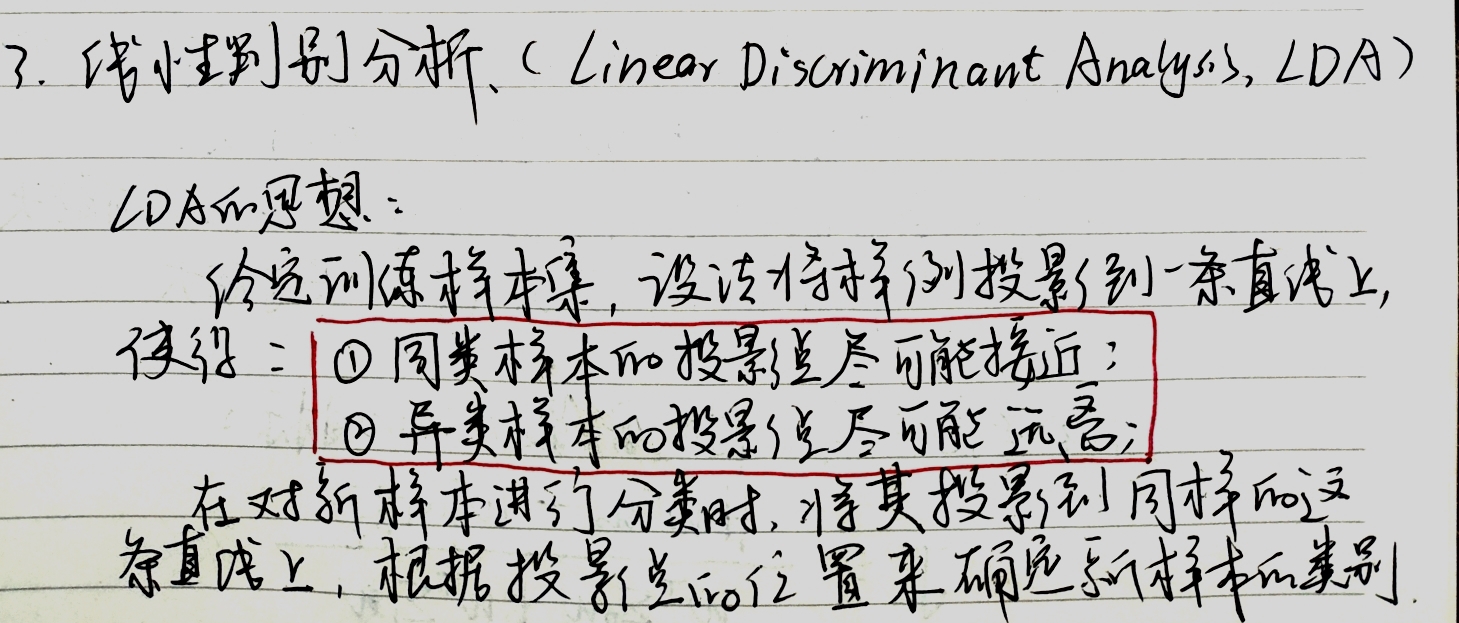 3. 线性判别分析、( Linear Discriminant Analysis, LDA )
LDA的思想：
给定训练样本集, 设法将样例投影到一条直线上,
使得：① 同类样本的投影点尽可能接近；
② 异类样本的投影点尽可能远离；
在对新样本进行分类时, 将其投影到同样的这
条直线上, 根据投影点的位置来确定新样本的类别.